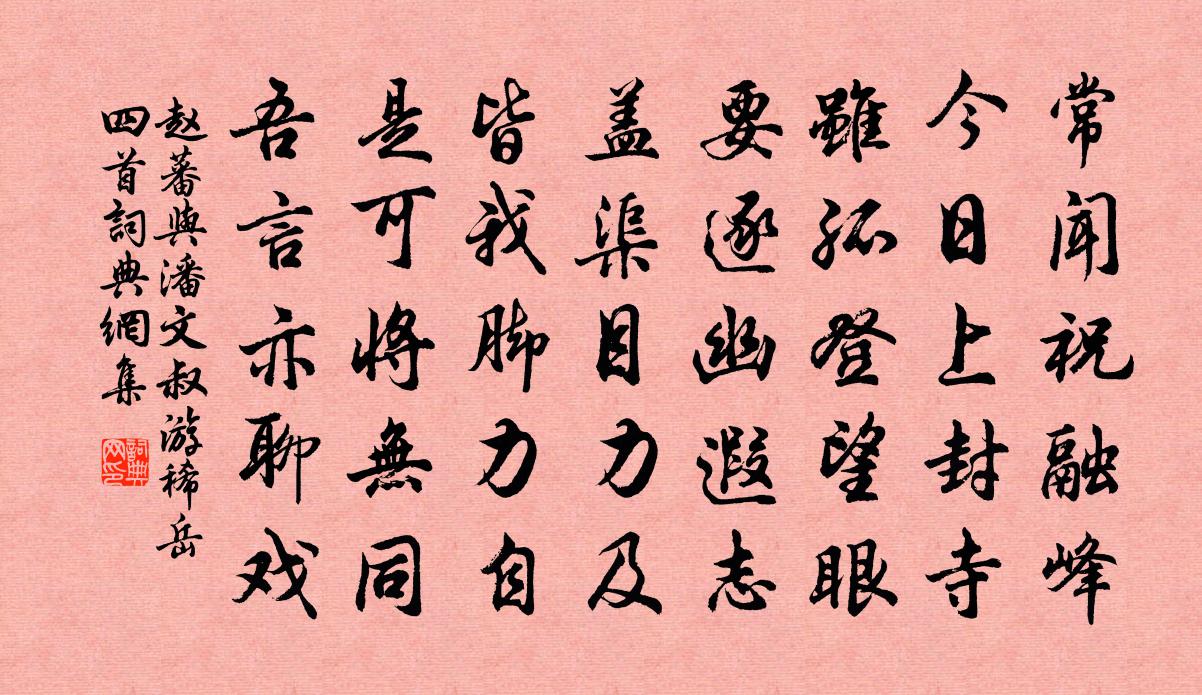 常闻祝融峰
今日上封寺
雖孤登望眼
要逐幽遐志
盖渠目力及
皆我脚力自
是可将無同
吾言亦聊戏
赵蕃與潘文叔游稀岳
四首詞典網集
詞典网印